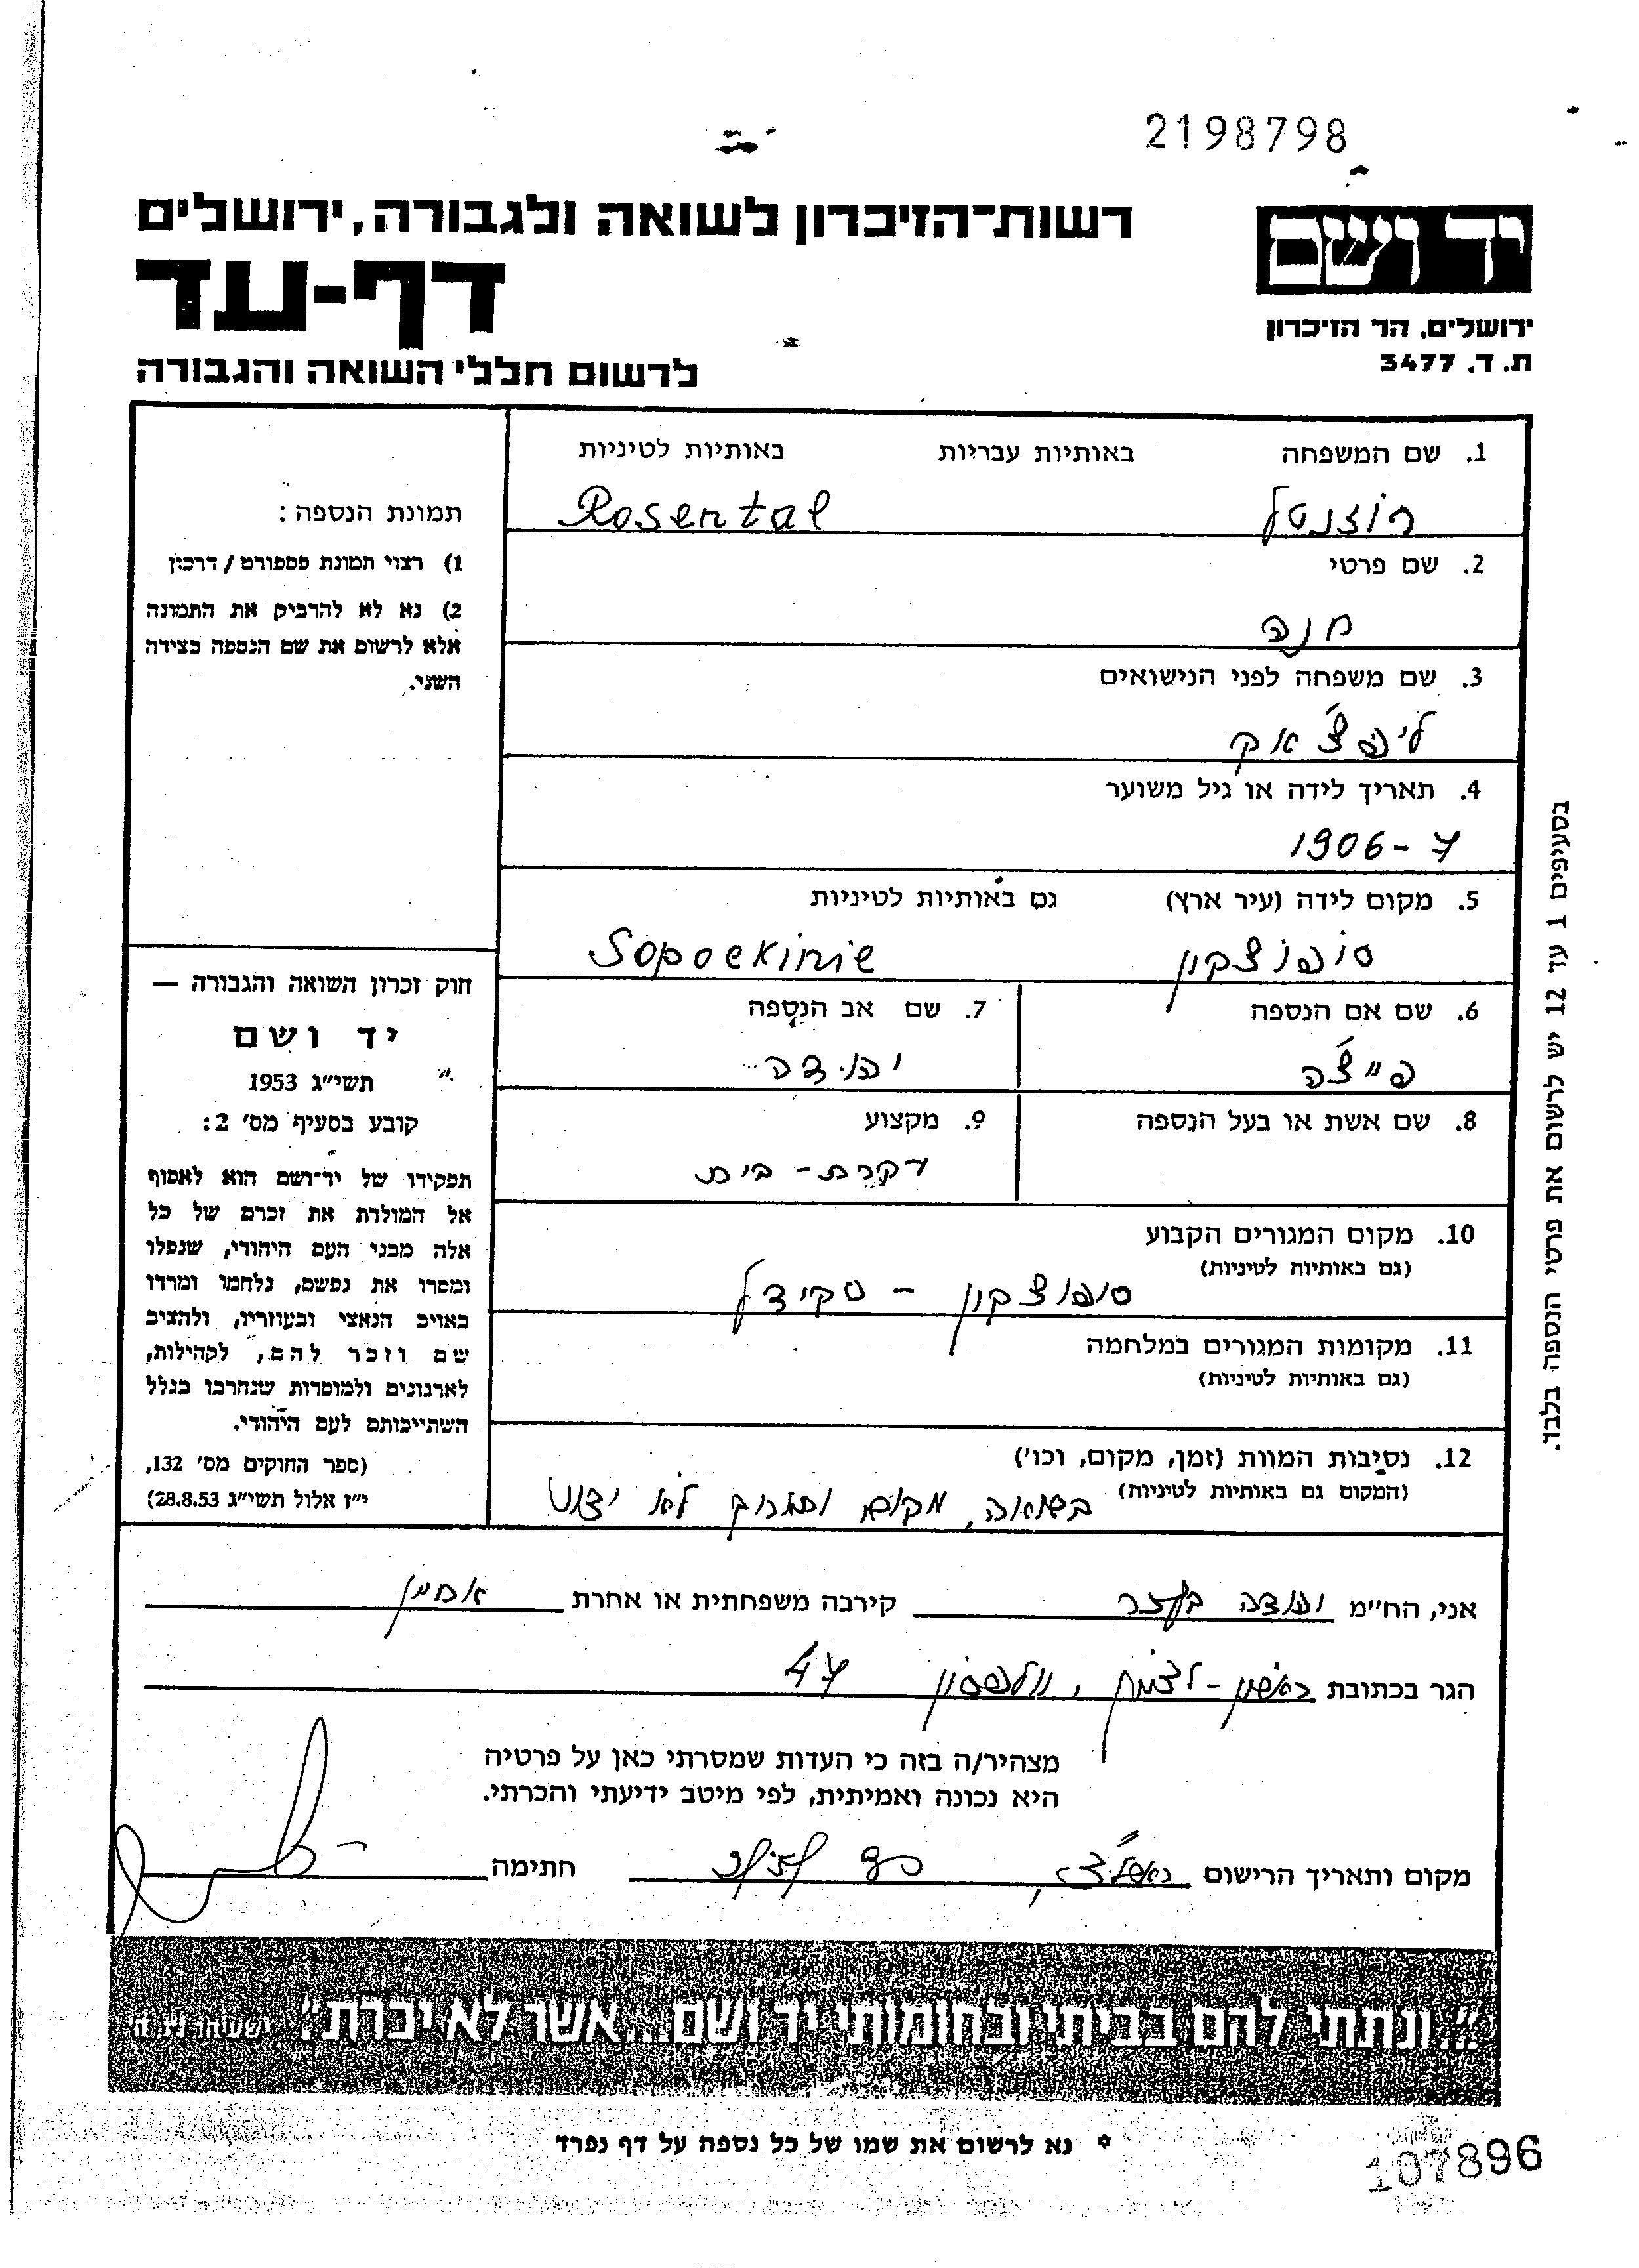 2198798
יד ושם
ירושלים, הר הזיכרון
ת.ד. 3477
רשות־הזיכרון לשואה ולגבורה, ירושלים
דף-עד
לרשום חללי השואה והגבורה
1. שם המשפחה באותיות עבריות באותיות לטיניות
רוזנטל Rosental
2. שם פרטי
חנה
3. שם משפחה לפני הנישואים
ליפצ'אק
4. תאריך לידה או גיל משוער
1906-7
5. מקום לידה (עיר ארץ) גם באותיות לטיניות
סופוצקין Sopoekinie
6. שם אם הנספה 7. שם אב הנספה
פייצ'ה יהודה
8. שם אשת או בעל הנספה 9. מקצוע
עקרת-בית
10. מקום המגורים הקבוע
(גם באותיות לטיניות)
סופוצקין - סקידל
11. מקומות המגורים במלחמה
(גם באותיות לטיניות)
12. נסיבות המוות (זמן, מקום, וכו')
(המקום גם באותיות לטיניות) בשואה, מקום ותאריך לא ידוע
תמונת הנספה:
1) רצוי תמונת פספורט / דרכון
2) נא לא להדביק את התמונה
אלא לרשום את שם הנספה בצידה
השני.
חוק זכרון השואה והגבורה —
יד ושם
תשי"ג 1953
קובע בסעיף מס' 2:
תפקידו של יד־ושם הוא לאסוף
אל המולדת את זכרם של כל
אלה מבני העם היהודי, שנפלו
ומסרו את נפשם, נלחמו ומרדו
באויב הנאצי ובעוזריו, ולהציב
שם וזכר להם, לקהילות,
לארגונים ולמוסדות שנחרבו בגלל
השתייכותם לעם היהודי.
(ספר החוקים מס' 132,
י"ז אלול תשי"ג 28.8.53)
בסעיפים 1 עד 12 יש לרשום את פרטי הנספה בלבד.
אני, הח"מ יהודה קירבה משפחתית או אחרת אחיין
הגר בכתובת ראשון-לציון, וולפסון 47
מצהיר/ה בזה כי העדות שמסרתי כאן על פרטיה
היא נכונה ואמיתית, לפי מיטב ידיעתי והכרתי.
מקום ותאריך הרישום ראשל"צ, חתימה
"...ונתתי להם בביתי ובחומותי יד ושם...אשר לא יכרת" ישעיהו נו, ה
* נא לרשום את שמו של כל נספה על דף נפרד
107896